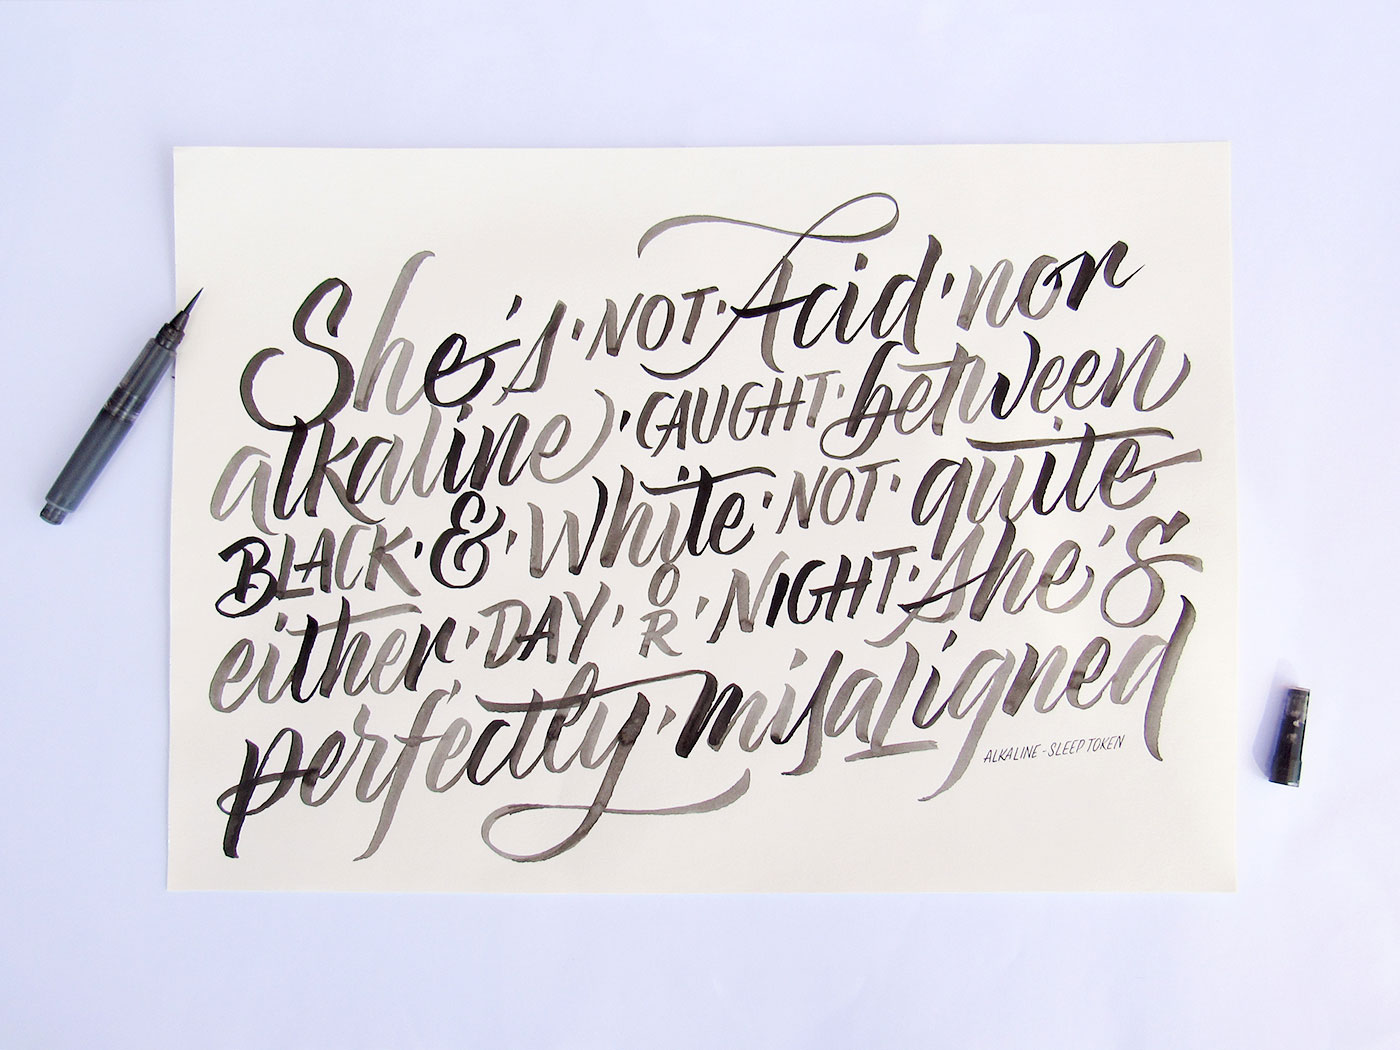 She's · NOT · Acid · nor
alkaline · CAUGHT · between
BLACK · & · White · NOT · quite
either · DAY · OR · NIGHT · she's
perfectly · misaLigned
ALKALINE - SLEEP TOKEN